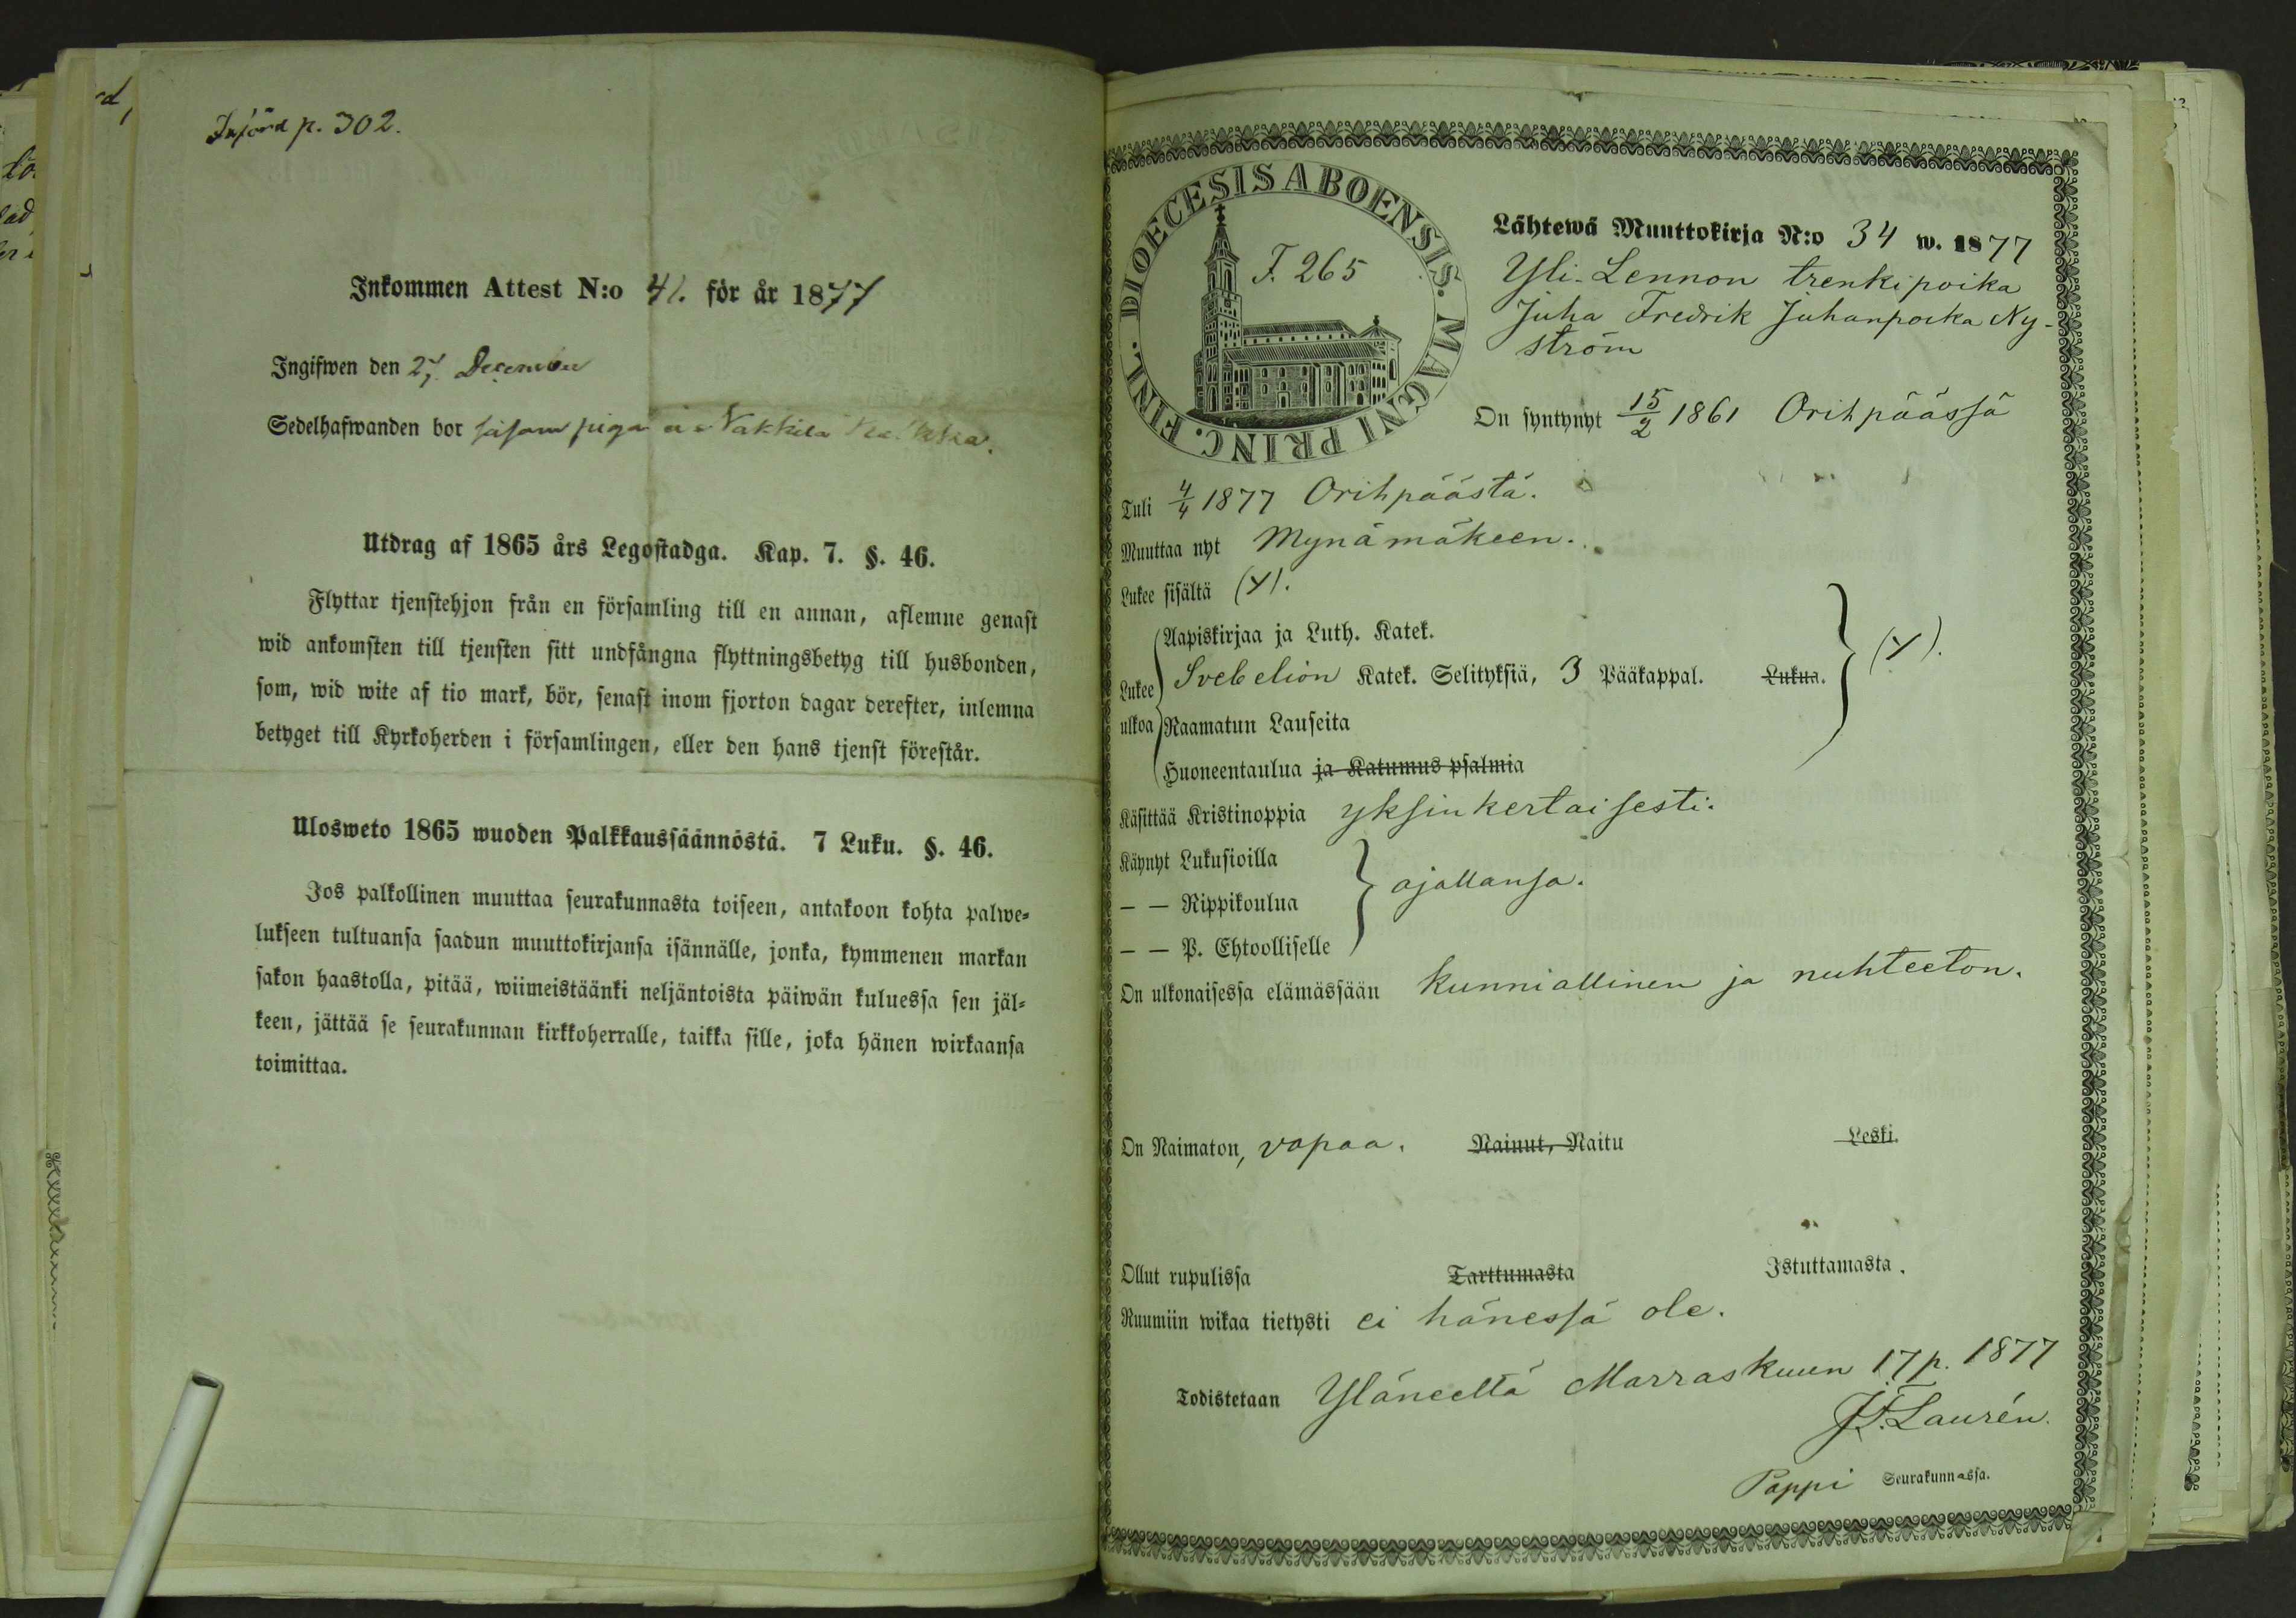 Införd p. 302.
Inkommen Attest N:o 41. för år 1877
Ingifwen den 27. December
Sedelhafwanden bor såsom piga å Nakkila
Utdrag af 1865 års Legostadga. Kap. 7. §. 46.
Flyttar tjenstehjon från en församling till en annan, aflemne genast
wid ankomsten till tjensten sitt undfångna flyttningsbetyg till husbonden,
som, wid wite af tio mark, bör, senast inom fjorton dagar derefter, inlemna
betyget till Kyrkoherden i församlingen, eller den hans tjenst förestår.
Ulosweto 1865 wuoden Palkkaussäännöstä. 7 Luku. §. 46.
Jos palkollinen muuttaa seurakunnasta toiseen, antakoon kohta palwe-
lukseen tultuansa saadun muuttokirjansa isännälle, jonka, kymmenen markan
sakon haastolla, pitää, wiimeistäänki neljäntoista päiwän kuluessa sen jäl-
keen, jättää se seurakunnan kirkkoherralle, taikka sille, joka hänen wirkaansa
toimittaa.
DIOECESIS ABOENSIS. MAGNI PRINC. FINL.
F. 265
Lähtewä Muuttokirja N:o 34 w. 1877
Yli-Lennon trenkipoika
Juha Fredrik Juhanpoika Ny-
ström
On syntynyt 15/2 1861 Orihpäässä
Tuli 4/4 1877 Orihpäästä.
Muuttaa nyt Mynämäkeen.
Lukee sisältä (y).
Lukee ulkoa
Aapiskirjaa ja Luth. Katek.
Svebelion Katek. Selityksiä, 3 Pääkappal. Lukua. (y).
Raamatun Lauseita
Huoneentaulua ja Katumus psalmia
Käsittää Kristinoppia yksinkertaisesti.
Käynyt Lukusioilla
— — Rippikoulua ajallansa.
— — P. Ehtoolliselle
On ulkonaisessa elämässään kunniallinen ja nuhteeton.
On Naimaton, vapaa. Nainut, Naitu Leski.
Ollut rupulissa Tarttumasta Istuttamasta.
Ruumiin wikaa tietysti ei hänessä ole.
Todistetaan Yläneeltä Marraskuun 17 p. 1877
J.F. Laurén.
Pappi Seurakunnassa.